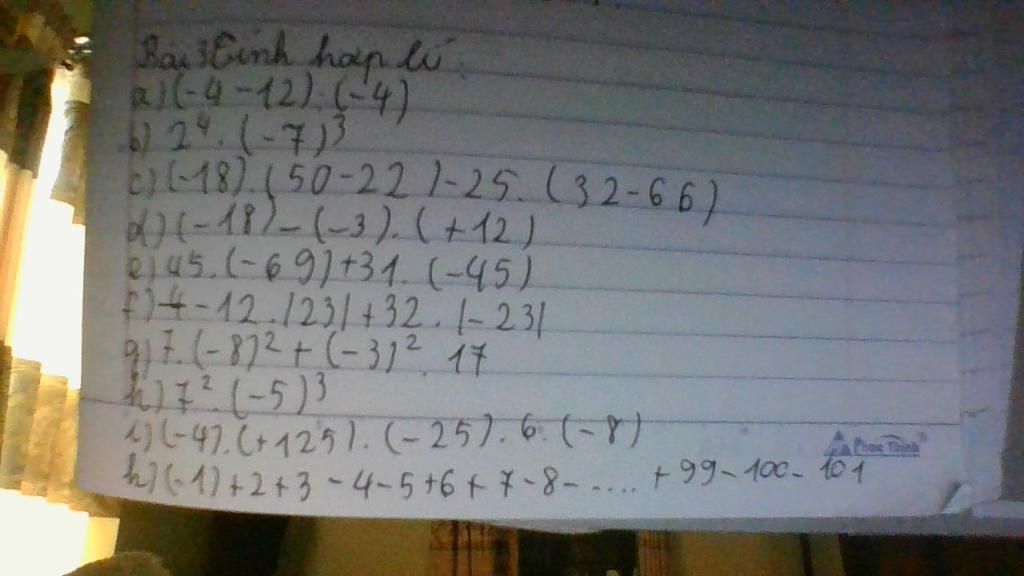 Bài 3 tính hợp lí:
a) (-4 -12) . (-4)
b) 2⁴ . (-7)³
c) (-18) . (50 - 22) - 25 . (32 - 66)
d) (-18) - (-3) . (+12)
e) 45 . (-69) + 31 . (-45)
f) -12 . |23| + 32 . |-23|
g) 7 . (-8)² + (-3)² . 17
h) 7² . (-5)³
i) (-4) . (+125) . (-25) . 6 . (-8)
k) (-1) + 2 + 3 - 4 - 5 + 6 + 7 - 8 - .... + 99 - 100 - 101